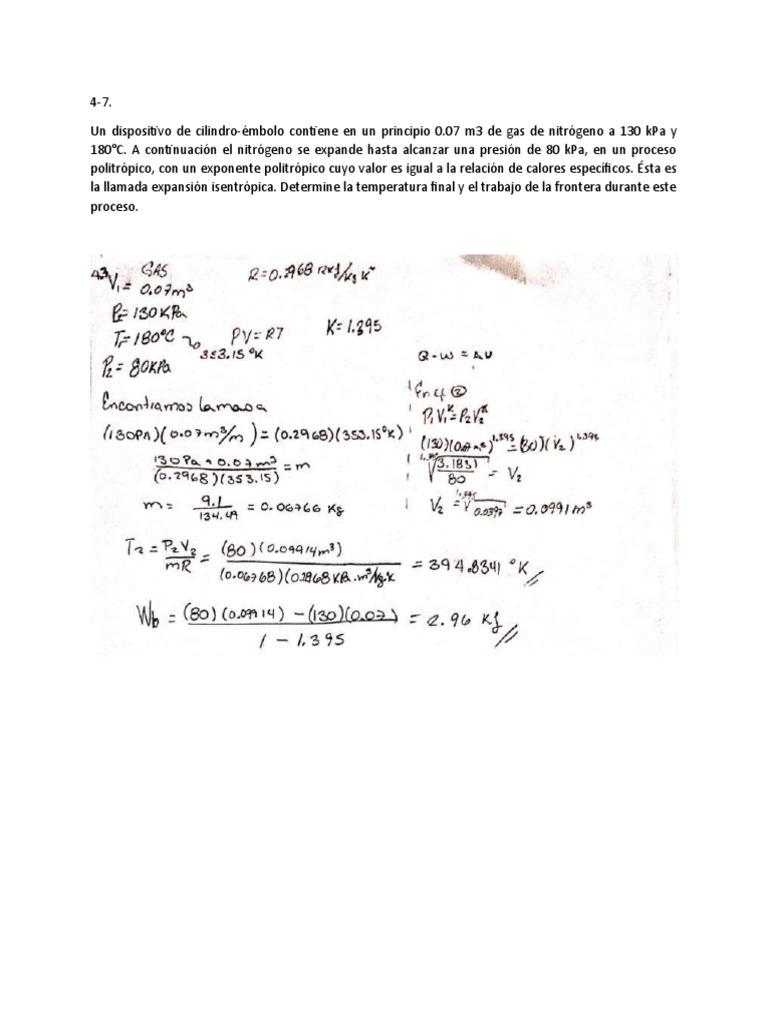 4-7.
Un dispositivo de cilindro-émbolo contiene en un principio 0.07 m3 de gas de nitrógeno a 130 kPa y
180°C. A continuación el nitrógeno se expande hasta alcanzar una presión de 80 kPa, en un proceso
politrópico, con un exponente politrópico cuyo valor es igual a la relación de calores específicos. Ésta es
la llamada expansión isentrópica. Determine la temperatura final y el trabajo de la frontera durante este
proceso.
GAS
V₁ = 0.07m³
R=0.2968
P₁= 130KPa
T₁=180°C
353.15°K
PV=RT
K=1.395
P₂= 80KPa
Q-W = ΔU
Encontramos la masa
(130Pa)(0.07m³/m)=(0.2968)(353.15°K)
130Pa * 0.07m³ / (0.2968)(353.15) = m
m = 9.1 / 134.49 = 0.06766 Kg
P₁V₁ᴷ=P₂V₂ᴷ
(80)(V₂)^1.395
3.1831 / 80 = V₂
V₂ = 0.0397 = 0.0991m³
T₂ = P₂V₂ / mR = (80)(0.09914m³) / (0.06768)(0.2968 KPa.m³/kg.K = 394.8341 °K
Wb = (80)(0.09914) – (130)(0.07) / 1 – 1.395 = 2.96 KJ